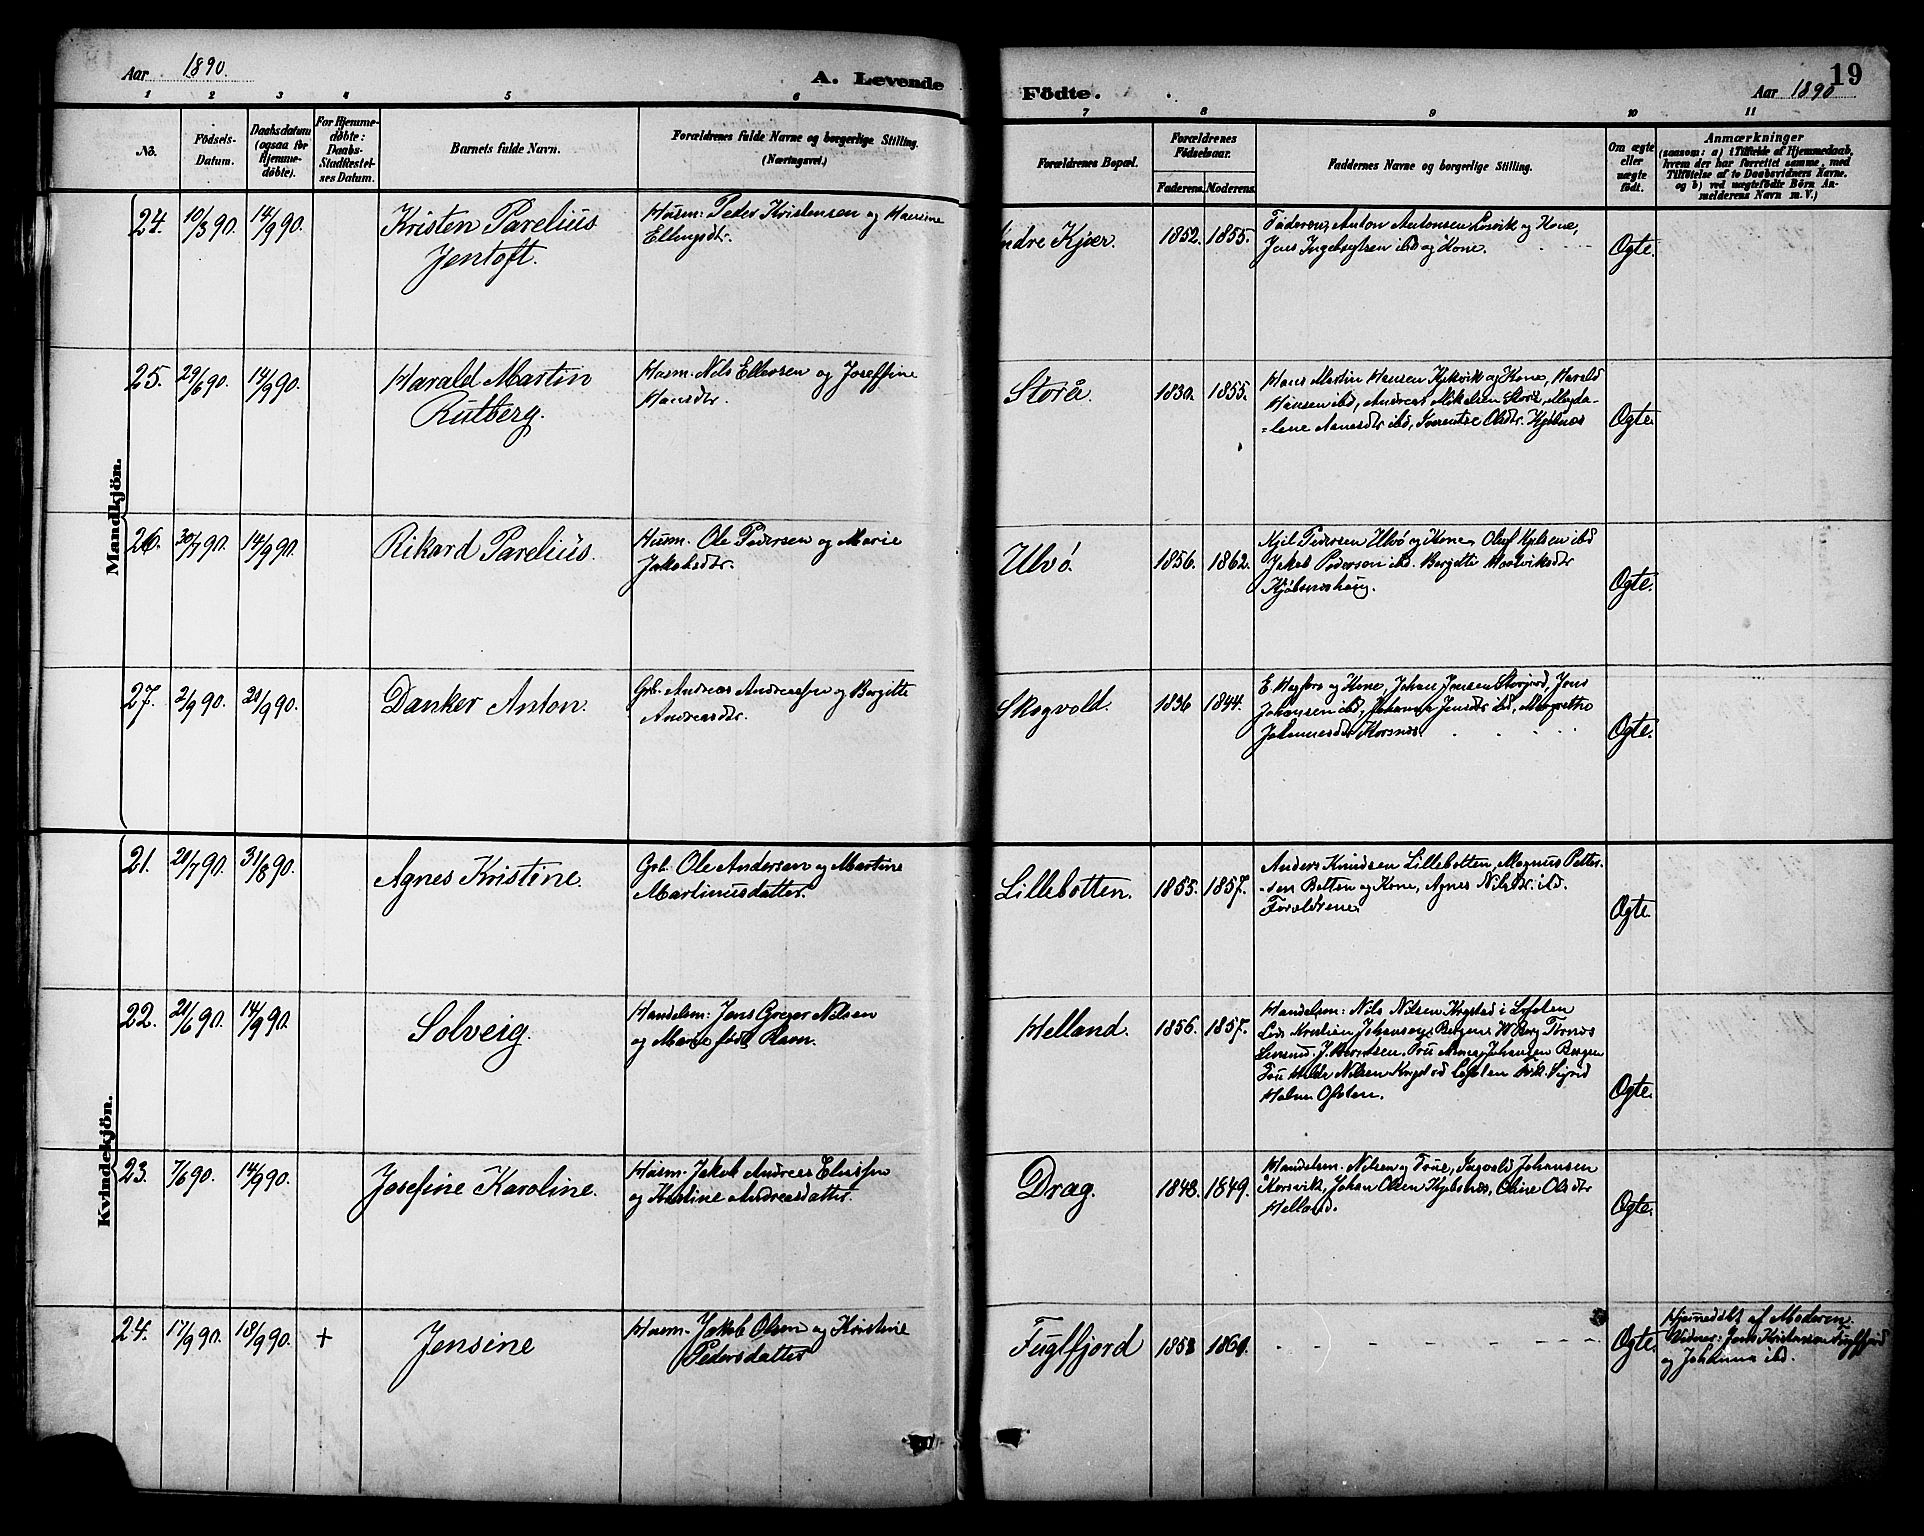 Aar 1890.
A. Levende
Födte.
Aar 1890
19
1 2 3 4 5 6 7 8 9 10 11
No.
Födsels-
Datum.
Daabsdatum
(ogsaa for
Hjemme-
døbte).
For Hjemme-
døbte:
Daabs-
Stadfestel-
ses Datum.
Barnets fulde Navn.
Forældrenes fulde Navne og borgerlige Stilling.
(Næringsvei.)
Forældrenes Bopæl.
Forældrenes
Födselsaar.
Faderens. Moderens.
Faddernes Navne og borgerlige Stilling.
Om ægte
eller
uægte
født.
Anmærkninger
(saasom: a) i Tilfælde af Hjemmedaab,
hvem der har forrettet samme, med
Tilföielse af to Daabsvidners Navne.
og b) ved uægtefödte Börn An-
melderens Navn m. V.)
Mandkjön.
24. 10/3 90. 14/9 90.
Kristen Parelius
Jentoft.
Husm: Peder Kristensen og Hansine
Ellingsdtr.
Indre Kjær. 1852. 1855.
Faderen, Anton Antonsen Losvik og Kone,
Jens Ingebrigtsen ibd og Kone.
Ægte.
25. 29/6 90. 14/9 90.
Harald Martin
Rutberg.
Husm: Nils Ellevsen og Joseffine
Hansdtr.
Storå 1830. 1855.
Hans Martin Hansen Kjekvik og Kone, Harald
Hansen ibd, Andreas Mikelsen Storå, Magda-
lene Hansdtr ibd, Olsdtr. Kjøbnæs
Ægte.
26. 30/7 90. 14/9 90.
Rikard Parelius.
Husm. Ole Pedersen og Marie
Jakobsdtr.
Ulvø. 1856. 1862.
Kjil Pedersen Ulvø og Kone, Oluf Kjelsen ibd
Jakob Pedersen ibd. Bergitte
Kjøbsneshaug.
Ægte.
27. 2/9 90. 21/9 90.
Danker Anton.
Grb. Andreas Andreassen og Bergitte
Andreasdtr.
Skogvold. 1836 1844.
E. Hagfors og Kone, Johan Jensen Storjord, Jens
Johansen ibd, Johanna Jensdtr ibd, Margrethe
Johannesdtr Korsnes.
Ægte.
Kvindekjön.
21. 20/7 90. 31/8 90.
Agnes Kristine.
Grb. Ole Andersen og Martine
Martinusdatter.
Lillebotten. 1855. 1857.
Anders Knudsen Lillebotten, Magnus Petter-
sen Botten og Kone, Agnes Nilsdtr. ibd.
Forældrene.
Ægte
22. 21/6 90. 14/9 90.
Solveig.
Handelsm: Jens Greger Nilsen
og Marie født Ravn.
Helland. 1856. 1857.
Handelsm: Nils Nilsen Kngstad i Lofoten
Kristian Johansen, Bergen W Berg
J. Berntsen. Fru Anna Johansen Bergen
Fru Hilda Nilsen Kngstad Lofoten Frk. Sigrid
Holm Ofoten.
Ægte.
23. 7/6 90. 14/9 90.
Josefine Karoline.
Husm. Jakob Andreas Eliassen
og Kristine Andreasdatter.
Drag. 1848. 1849.
Handelsm. Nilsen og Frue, Ingvald Johansen
Korsvik, Johan Olsen Kjøbsnes, Oline Olsdtr
Helland.
Ægte.
24. 17/9 90. 18/9 90. +
Jensine
Husm. Jakob Olsen og Kristine
Pedersdatter
Fuglfjord 1858 1860.
Ægte.
Hjemedøbt af Moderen.
Vidner: Jens Kristensen Fuglfjord
og Johanna ibd.